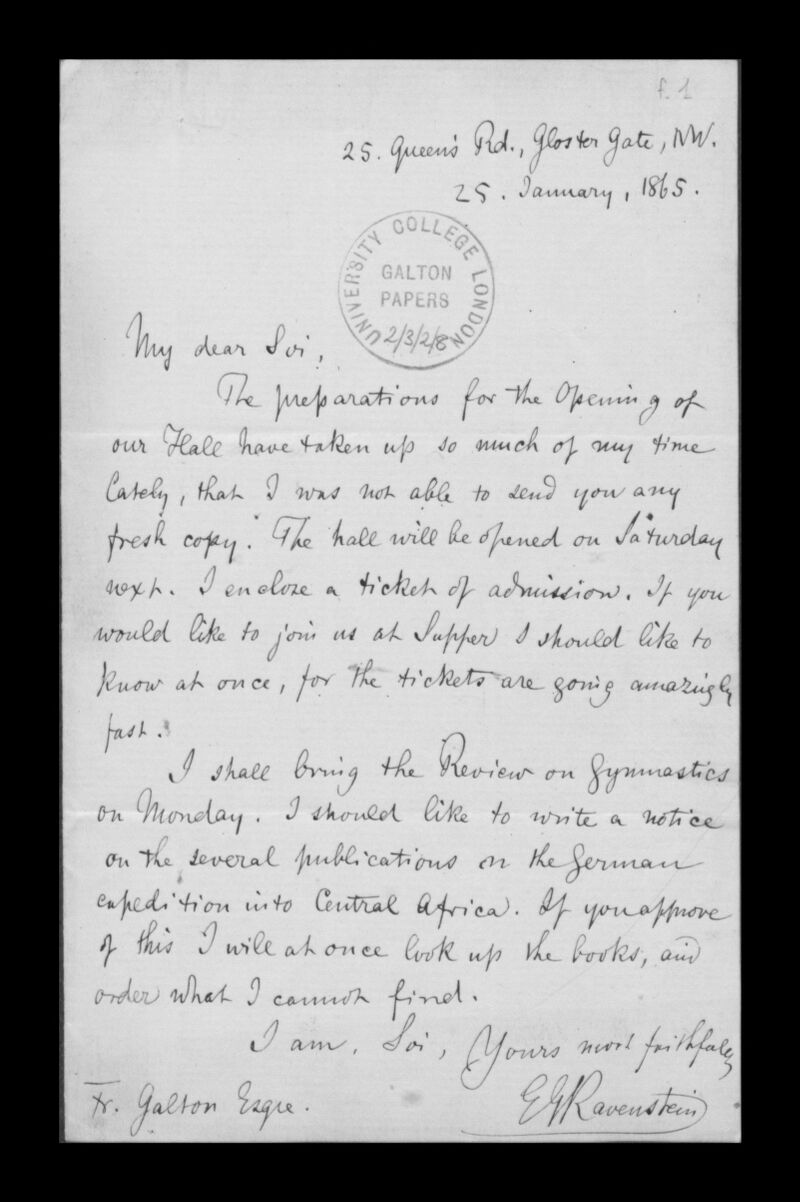 f. 1
25. Queen's Rd., Gloster Gate, NW.
25. January, 1865.
UNIVERSITY COLLEGE LONDON
GALTON
PAPERS
2/3/2/8
My dear Sir,
The preparations for the Opening of
our Hall have taken up so much of my time
lately, that I was not able to send you any
fresh copy. The hall will be opened on Saturday
next. I enclose a ticket of admission. If you
would like to join us at Supper I should like to
know at once, for the tickets are going amazingly
fast.
I shall bring the Review on Gymnastics
on Monday. I should like to write a notice
on the several publications on the German
expedition into Central Africa. If you approve
of this I will at once look up the books, and
order what I cannot find.
I am, Sir, Yours most faithfully
EGRavenstein
Fr. Galton Esqre.